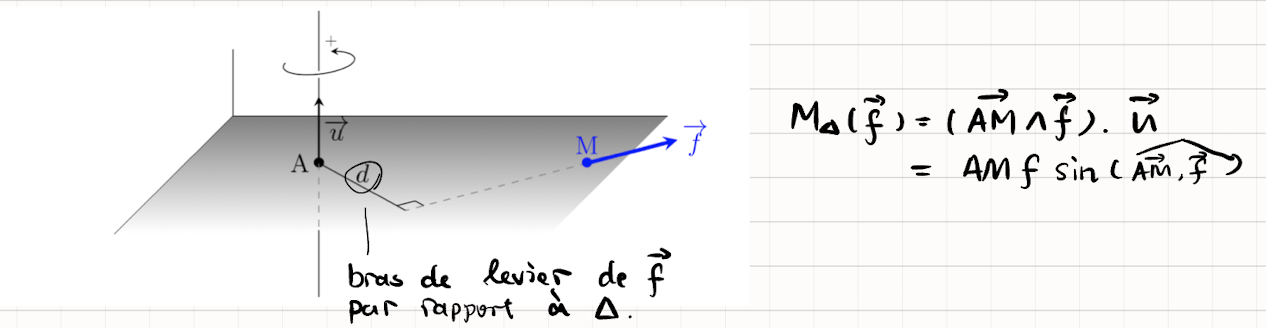 +
$\vec{u}$
A
d
M
$\vec{f}$
bras de levier de $\vec{f}$
par rapport à Δ.
$M_\Delta(\vec{f}) = (\overrightarrow{AM} \wedge \vec{f}) . \vec{u}$
$= AM f \sin(\widehat{\overrightarrow{AM}, \vec{f}})$